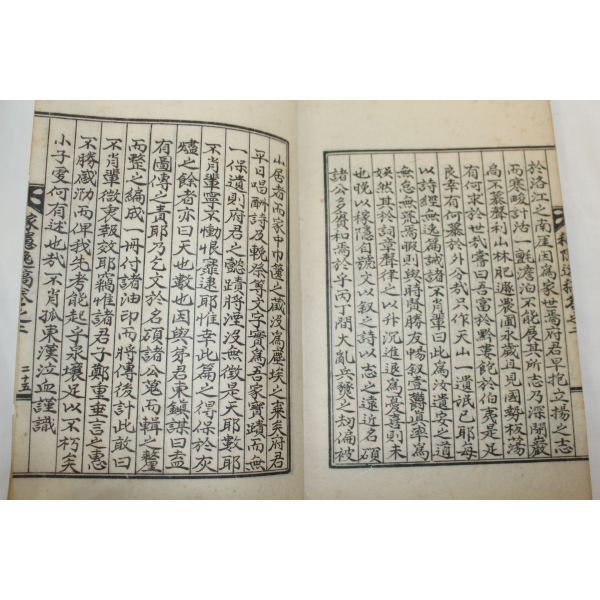 於洛江之南崖因爲家世焉府君早抱立揚之志
而寒畯計沽一氈澹泊不能展其所志乃深閉巖
扃不慕聲利山林肥遯畏園永歲且見國勢板蕩
有何求於世哉嘗曰吾富於黔婁飽於伯夷是足
良幸有何慕於外分哉只作天山遺氓已耶每
以詩經無逸篇誡諸不肖輩曰此爲汝遺安之道
無怠無荒焉暇則與時賢勝友暢叙一壺罇真率爲
娛然其於詞章聲律之以升沉進退爲憂喜則未
也晩以稼隱自號文以叙之詩以志之遠近名碩
諸公多賡和焉於乎丙丁間大亂兵燹之劫偏被
山居者而家中巾篋之藏沒爲塵埃之乘矣府君
平日唱酬詩及輓祭等文字實爲吾家寶蹟而無
一保遺則府君之懿蹟將湮沒無徵是天耶數耶
不肖輩寧不慟恨靡逮耶惟幸此篇之得保於灰
燼之餘者亦曰天也數也因與弟君東鎭謀曰盍
有圖傳之責耶乃乞文於名碩諸公蒐而輯之釐
而整之編成一冊付諸油印而將傳後計此敢曰
不肖輩微衷報效耶竊惟諸君子鄭重垂言之惠
不勝感泐而俾我先考能起乎泉壤足以不朽矣
小子更何有述也哉不肖孤東漢泣血謹識
稼隱逸稿卷之二
二十五